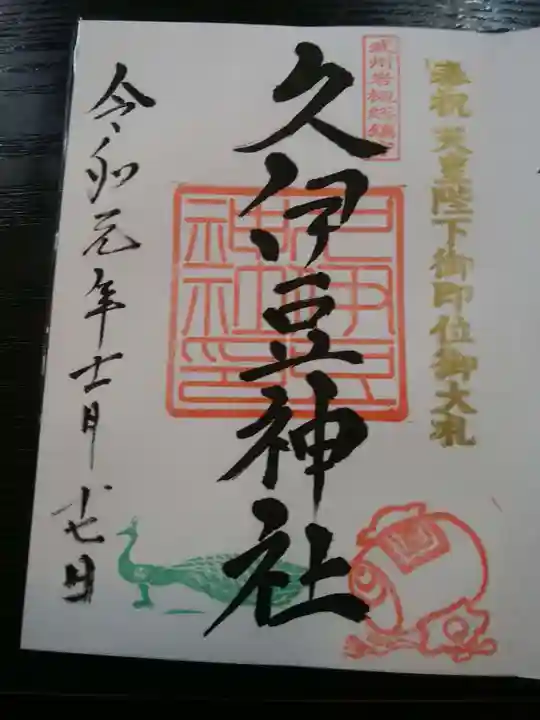 奉祝 天皇陛下御即位御大礼
武州岩槻総鎮守
久伊豆神社
久伊豆神社印
令和元年十一月廿七日